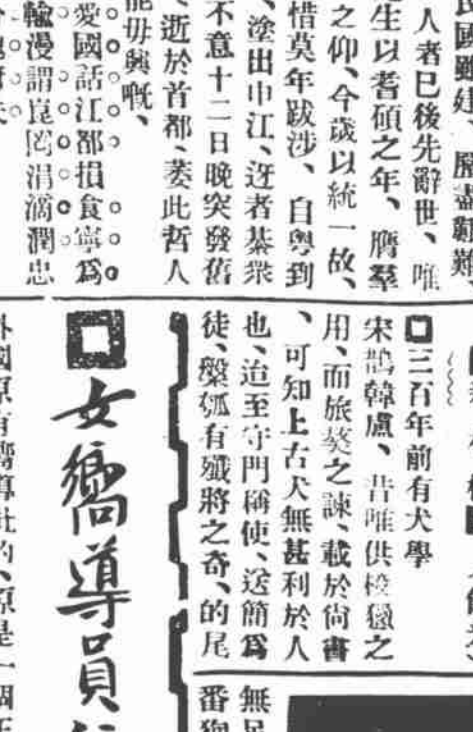 人者已後先辭世、唯
生以耆碩之年、膺羣
之仰、今歲以統一故、
惜莫年跋涉、自粵到
、塗出申江、迓者綦衆
不意十二日晚突發舊
、逝於首都、萎此哲人
能毋興嘅、
愛國話江都損食寧爲
輸漫謂崑岡涓滴潤忠
三百年前有犬學
宋鵲韓盧、昔唯供校獵之
用、而旅葵之諫、載於尙書
、可知上古犬無甚利於人
也、迨至守門稱使、送簡爲
徒、槃瓠有殲將之奇、的尾
番狗
無足
女嚮導員
外國原有嚮導社的、原是一個正